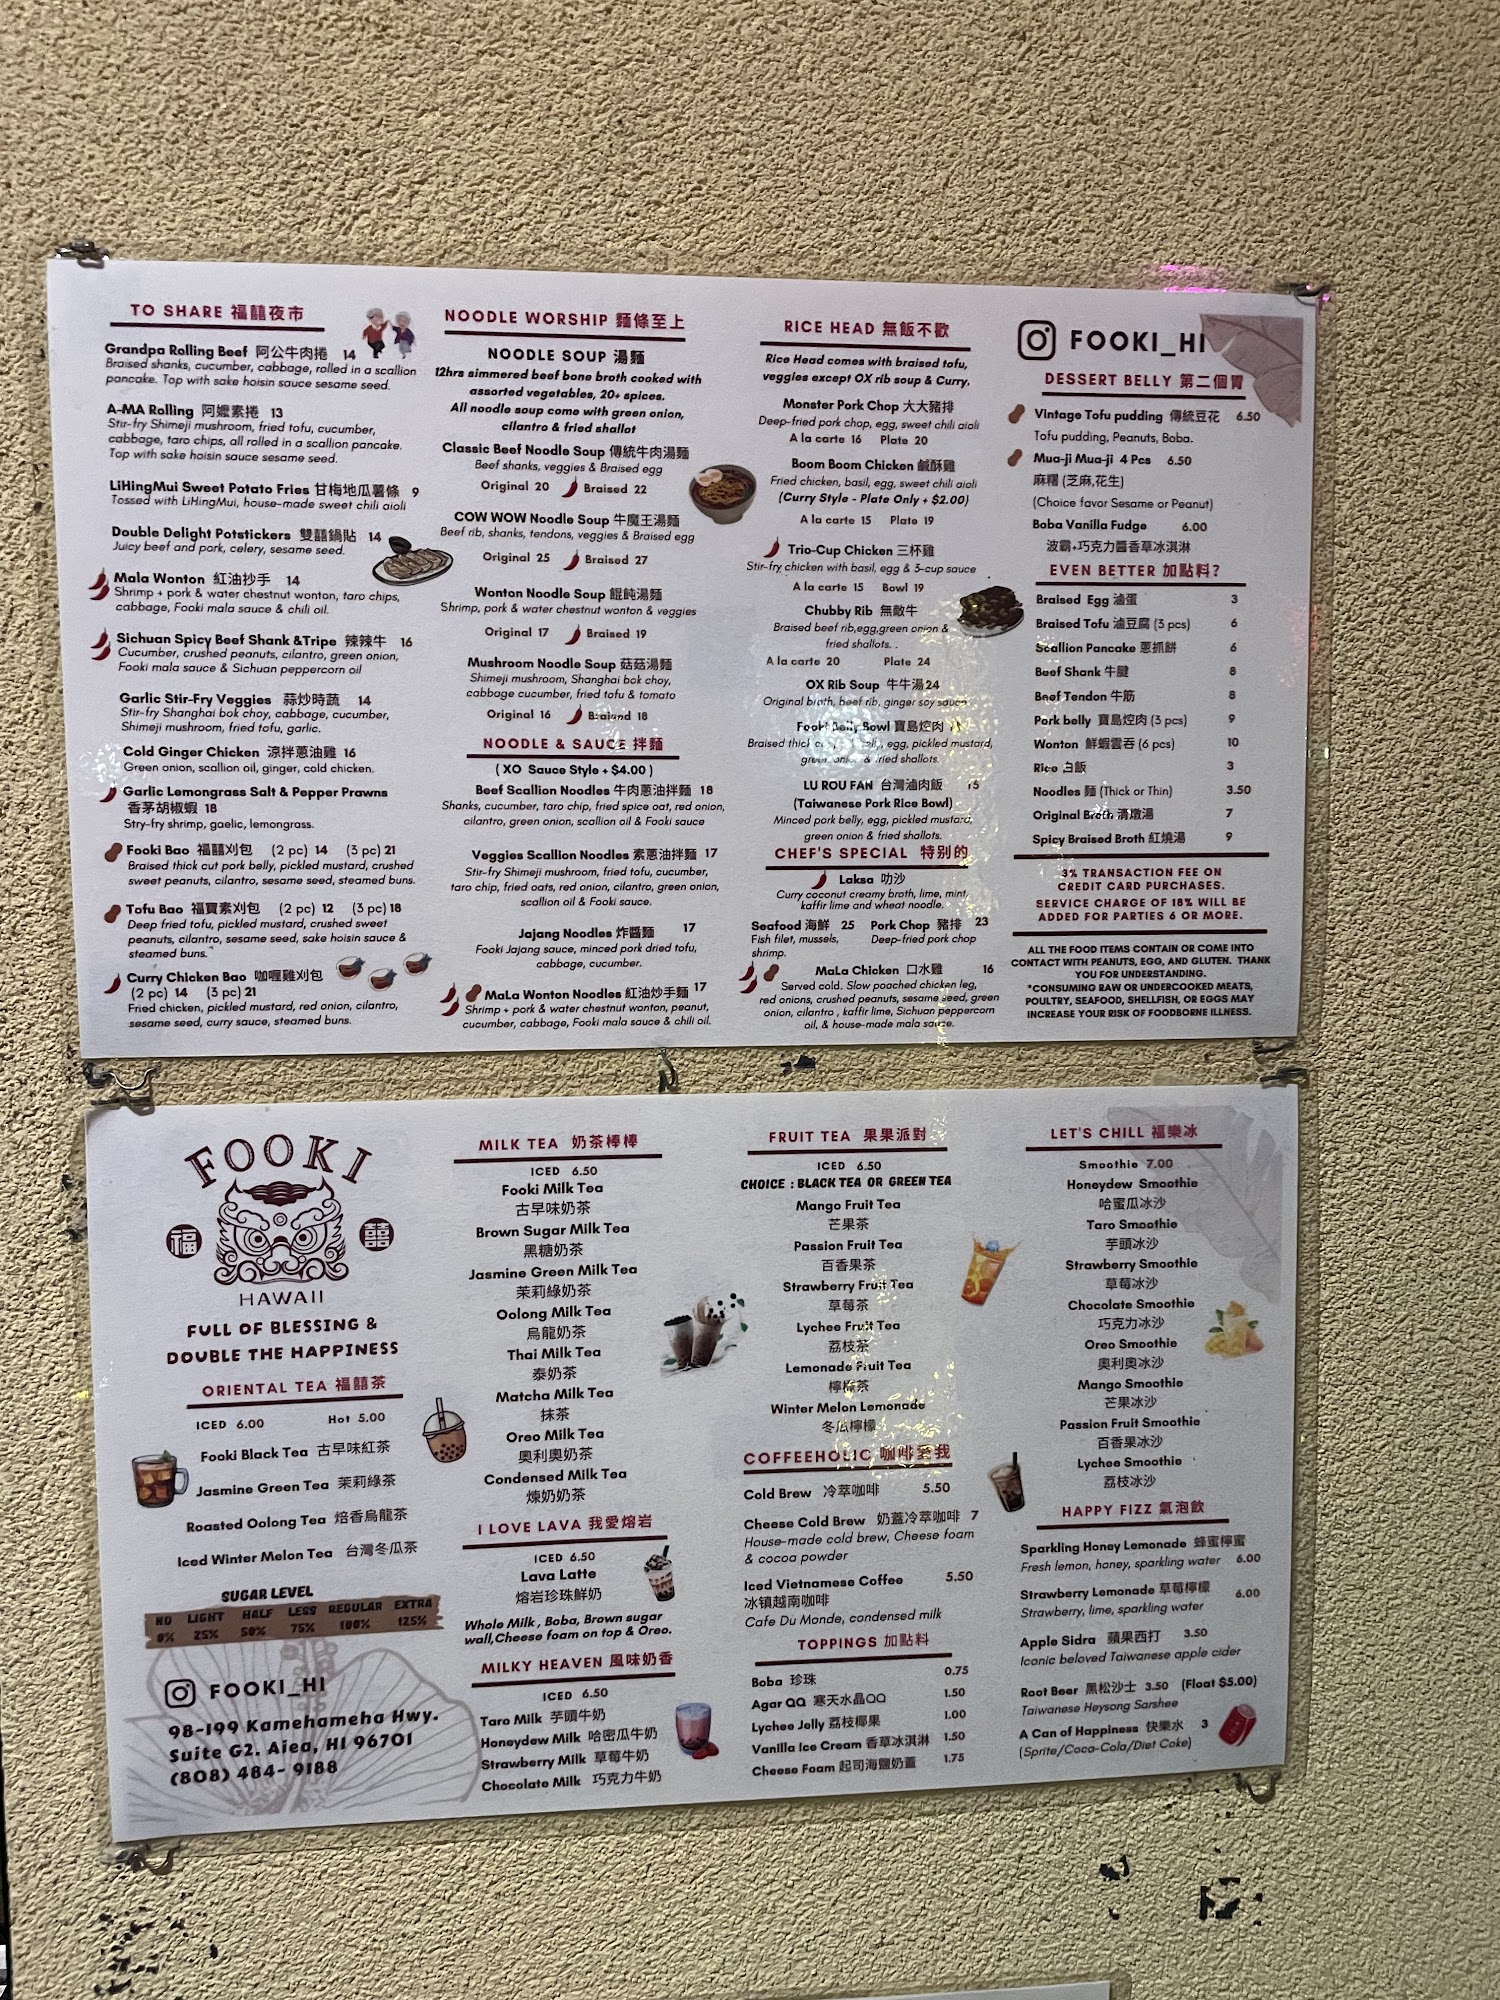 TO SHARE 福囍夜市
Grandpa Rolling Beef 阿公牛肉捲 14
Braised shanks, cucumber, cabbage, rolled in a scallion
pancake. Top with sake hoisin sauce sesame seed.
A-MA Rolling 阿嬤素捲 13
Stir-fry Shimeji mushroom, fried tofu, cucumber,
cabbage, taro chips, all rolled in a scallion pancake.
Top with sake hoisin sauce sesame seed.
LiHingMui Sweet Potato Fries 甘梅地瓜薯條 9
Tossed with LiHingMui, house-made sweet chili aioli
Double Delight Potstickers 雙囍鍋貼 14
Juicy beef and pork, celery, sesame seed.
Mala Wonton 紅油抄手 14
Shrimp + pork & water chestnut wonton, taro chips,
cabbage, Fooki mala sauce & chili oil.
Sichuan Spicy Beef Shank &Tripe 辣辣牛 16
Cucumber, crushed peanuts, cilantro, green onion,
Fooki mala sauce & Sichuan peppercorn oil
Garlic Stir-Fry Veggies 蒜炒時蔬 14
Stir-fry Shanghai bok choy, cabbage, cucumber,
Shimeji mushroom, fried tofu, garlic.
Cold Ginger Chicken 涼拌蔥油雞 16
Green onion, scallion oil, ginger, cold chicken.
Garlic Lemongrass Salt & Pepper Prawns
香茅胡椒蝦 18
Stry-fry shrimp, gaelic, lemongrass.
Fooki Bao 福囍刈包 (2 pc) 14 (3 pc) 21
Braised thick cut pork belly, pickled mustard, crushed
sweet peanuts, cilantro, sesame seed, steamed buns.
Tofu Bao 福寶素刈包 (2 pc) 12 (3 pc) 18
Deep fried tofu, pickled mustard, crushed sweet
peanuts, cilantro, sesame seed, sake hoisin sauce &
steamed buns.
Curry Chicken Bao 咖喱雞刈包
(2 pc) 14 (3 pc) 21
Fried chicken, pickled mustard, red onion, cilantro,
sesame seed, curry sauce, steamed buns.
NOODLE WORSHIP 麵條至上
NOODLE SOUP 湯麵
12hrs simmered beef bone broth cooked with
assorted vegetables, 20+ spices.
All noodle soup come with green onion,
cilantro & fried shallot
Classic Beef Noodle Soup 傳統牛肉湯麵
Beef shanks, veggies & Braised egg
Original 20 Braised 22
COW WOW Noodle Soup 牛魔王湯麵
Beef rib, shanks, tendons, veggies & Braised egg
Original 25 Braised 27
Wonton Noodle Soup 餛飩湯麵
Shrimp, pork & water chestnut wonton & veggies
Original 17 Braised 19
Mushroom Noodle Soup 菇菇湯麵
Shimeji mushroom, Shanghai bok choy,
cabbage cucumber, fried tofu & tomato
Original 16 Braised 18
NOODLE & SAUCE 拌麵
( XO Sauce Style + $4.00 )
Beef Scallion Noodles 牛肉蔥油拌麵 18
Shanks, cucumber, taro chip, fried spice oat, red onion,
cilantro, green onion, scallion oil & Fooki sauce
Veggies Scallion Noodles 素蔥油拌麵 17
Stir-fry Shimeji mushroom, fried tofu, cucumber,
taro chip, fried oats, red onion, cilantro, green onion,
scallion oil & Fooki sauce.
Jajang Noodles 炸醬麵 17
Fooki Jajang sauce, minced pork dried tofu,
cabbage, cucumber.
MaLa Wonton Noodles 紅油炒手麵 17
Shrimp + pork & water chestnut wonton, peanut,
cucumber, cabbage, Fooki mala sauce & chili oil.
RICE HEAD 無飯不歡
Rice Head comes with braised tofu,
veggies except OX rib soup & Curry.
Monster Pork Chop 大大豬排
Deep-fried pork chop, egg, sweet chili aioli
A la carte 16 Plate 20
Boom Boom Chicken 鹹酥雞
Fried chicken, basil, egg, sweet chili aioli
(Curry Style - Plate Only + $2.00)
A la carte 15 Plate 19
Trio-Cup Chicken 三杯雞
Stir-fry chicken with basil, egg & 3-cup sauce
A la carte 15 Bowl 19
Chubby Rib 無敵牛
Braised beef rib,egg,green onion &
fried shallots. .
A la carte 20 Plate 24
OX Rib Soup 牛牛湯24
Original broth, beef rib, ginger soy sauce
Fooki Belly Bowl 寶島焢肉
Braised thick cut pork belly, egg, pickled mustard,
green onion & fried shallots.
LU ROU FAN 台灣滷肉飯 15
(Taiwanese Pork Rice Bowl)
Minced pork belly, egg, pickled mustard,
green onion & fried shallots.
CHEF'S SPECIAL 特别的
Laksa 叻沙
Curry coconut creamy broth, lime, mint,
kaffir lime and wheat noodle.
Seafood 海鮮 25 Pork Chop 豬排 23
Fish filet, mussels, Deep-fried pork chop
shrimp.
MaLa Chicken 口水雞 16
Served cold. Slow poached chicken leg,
red onions, crushed peanuts, sesame seed, green
onion, cilantro , kaffir lime, Sichuan peppercorn
oil, & house-made mala sauce.
FOOKI_HI
DESSERT BELLY 第二個胃
Vintage Tofu pudding 傳統豆花 6.50
Tofu pudding, Peanuts, Boba.
Mua-ji Mua-ji 4 Pcs 6.50
麻糬 (芝麻,花生)
(Choice favor Sesame or Peanut)
Boba Vanilla Fudge 6.00
波霸+巧克力醬香草冰淇淋
EVEN BETTER 加點料?
Braised Egg 滷蛋 3
Braised Tofu 滷豆腐 (3 pcs) 6
Scallion Pancake 蔥抓餅 6
Beef Shank 牛腱 8
Beef Tendon 牛筋 8
Pork belly 寶島焢肉 (3 pcs) 9
Wonton 鮮蝦雲吞 (6 pcs) 10
Rice 白飯 3
Noodles 麵 (Thick or Thin) 3.50
Original Broth 清燉湯 7
Spicy Braised Broth 紅燒湯 9
3% TRANSACTION FEE ON
CREDIT CARD PURCHASES.
SERVICE CHARGE OF 18% WILL BE
ADDED FOR PARTIES 6 OR MORE.
ALL THE FOOD ITEMS CONTAIN OR COME INTO
CONTACT WITH PEANUTS, EGG, AND GLUTEN. THANK
YOU FOR UNDERSTANDING.
*CONSUMING RAW OR UNDERCOOKED MEATS,
POULTRY, SEAFOOD, SHELLFISH, OR EGGS MAY
INCREASE YOUR RISK OF FOODBORNE ILLNESS.
FOOKI
福
囍
HAWAII
FULL OF BLESSING &
DOUBLE THE HAPPINESS
ORIENTAL TEA 福囍茶
ICED 6.00 Hot 5.00
Fooki Black Tea 古早味紅茶
Jasmine Green Tea 茉莉綠茶
Roasted Oolong Tea 焙香烏龍茶
Iced Winter Melon Tea 台灣冬瓜茶
SUGAR LEVEL
NO LIGHT HALF LESS REGULAR EXTRA
0% 25% 50% 75% 100% 125%
FOOKI_HI
98-199 Kamehameha Hwy.
Suite G2. Aiea, HI 96701
(808) 484- 9188
MILK TEA 奶茶棒棒
ICED 6.50
Fooki Milk Tea
古早味奶茶
Brown Sugar Milk Tea
黑糖奶茶
Jasmine Green Milk Tea
茉莉綠奶茶
Oolong Milk Tea
烏龍奶茶
Thai Milk Tea
泰奶茶
Matcha Milk Tea
抹茶
Oreo Milk Tea
奧利奧奶茶
Condensed Milk Tea
煉奶奶茶
I LOVE LAVA 我愛熔岩
ICED 6.50
Lava Latte
熔岩珍珠鮮奶
Whole Milk , Boba, Brown sugar
wall,Cheese foam on top & Oreo.
MILKY HEAVEN 風味奶香
ICED 6.50
Taro Milk 芋頭牛奶
Honeydew Milk 哈密瓜牛奶
Strawberry Milk 草莓牛奶
Chocolate Milk 巧克力牛奶
FRUIT TEA 果果派對
ICED 6.50
CHOICE : BLACK TEA OR GREEN TEA
Mango Fruit Tea
芒果茶
Passion Fruit Tea
百香果茶
Strawberry Fruit Tea
草莓茶
Lychee Fruit Tea
荔枝茶
Lemonade Fruit Tea
檸檬茶
Winter Melon Lemonade
冬瓜檸檬
COFFEEHOLIC 咖啡愛我
Cold Brew 冷萃咖啡 5.50
Cheese Cold Brew 奶蓋冷萃咖啡 7
House-made cold brew, Cheese foam
& cocoa powder
Iced Vietnamese Coffee 5.50
冰镇越南咖啡
Cafe Du Monde, condensed milk
TOPPINGS 加點料
Boba 珍珠 0.75
Agar QQ 寒天水晶QQ 1.50
Lychee Jelly 荔枝椰果 1.00
Vanilla Ice Cream 香草冰淇淋 1.50
Cheese Foam 起司海鹽奶蓋 1.75
LET'S CHILL 福樂冰
Smoothie 7.00
Honeydew Smoothie
哈蜜瓜冰沙
Taro Smoothie
芋頭冰沙
Strawberry Smoothie
草莓冰沙
Chocolate Smoothie
巧克力冰沙
Oreo Smoothie
奧利奧冰沙
Mango Smoothie
芒果冰沙
Passion Fruit Smoothie
百香果冰沙
Lychee Smoothie
荔枝冰沙
HAPPY FIZZ 氣泡飲
Sparkling Honey Lemonade 蜂蜜檸蜜
Fresh lemon, honey, sparkling water 6.00
Strawberry Lemonade 草莓檸檬 6.00
Strawberry, lime, sparkling water
Apple Sidra 蘋果西打 3.50
Iconic beloved Taiwanese apple cider
Root Beer 黑松沙士 3.50 (Float $5.00)
Taiwanese Heysong Sarshee
A Can of Happiness 快樂水 3
(Sprite/Coca-Cola/Diet Coke)